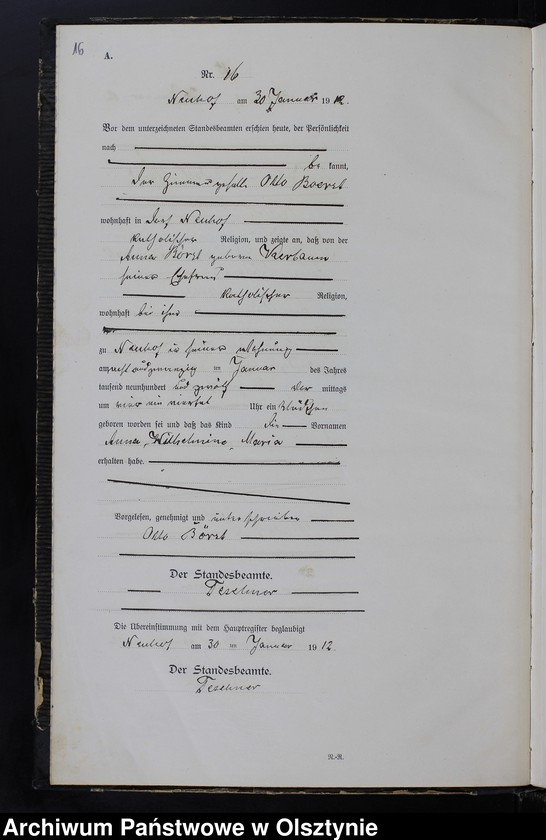 16
A.
Nr. 16
Neuhof am 30 Januar 1912.
Vor dem unterzeichneten Standesbeamten erschien heute, der Persönlichkeit
nach
be kannt,
der Zimmergeselle Otto Boerst
wohnhaft in Dorf Neuhof
katholischer Religion, und zeigte an, daß von der
Anna Börst geborne
seiner Ehefrau
katholischer Religion,
wohnhaft bei ihm
zu Neuhof in seiner Wohnung
am achtundzwanzig ten Januar des Jahres
tausend neunhundert und zwölf mittags
um vier ein viertel Uhr ein Mädchen
geboren worden sei und daß das Kind die Vornamen
Anna, Wilhelmine, Maria
erhalten habe.
Vorgelesen, genehmigt und unterschrieben
Otto Börst
Der Standesbeamte.
Teschner
Die Übereinstimmung mit dem Hauptregister beglaubigt
Neuhof am 30 ten Januar 1912.
Der Standesbeamte.
Teschner
N.-R.
Archiwum Państwowe w Olsztynie